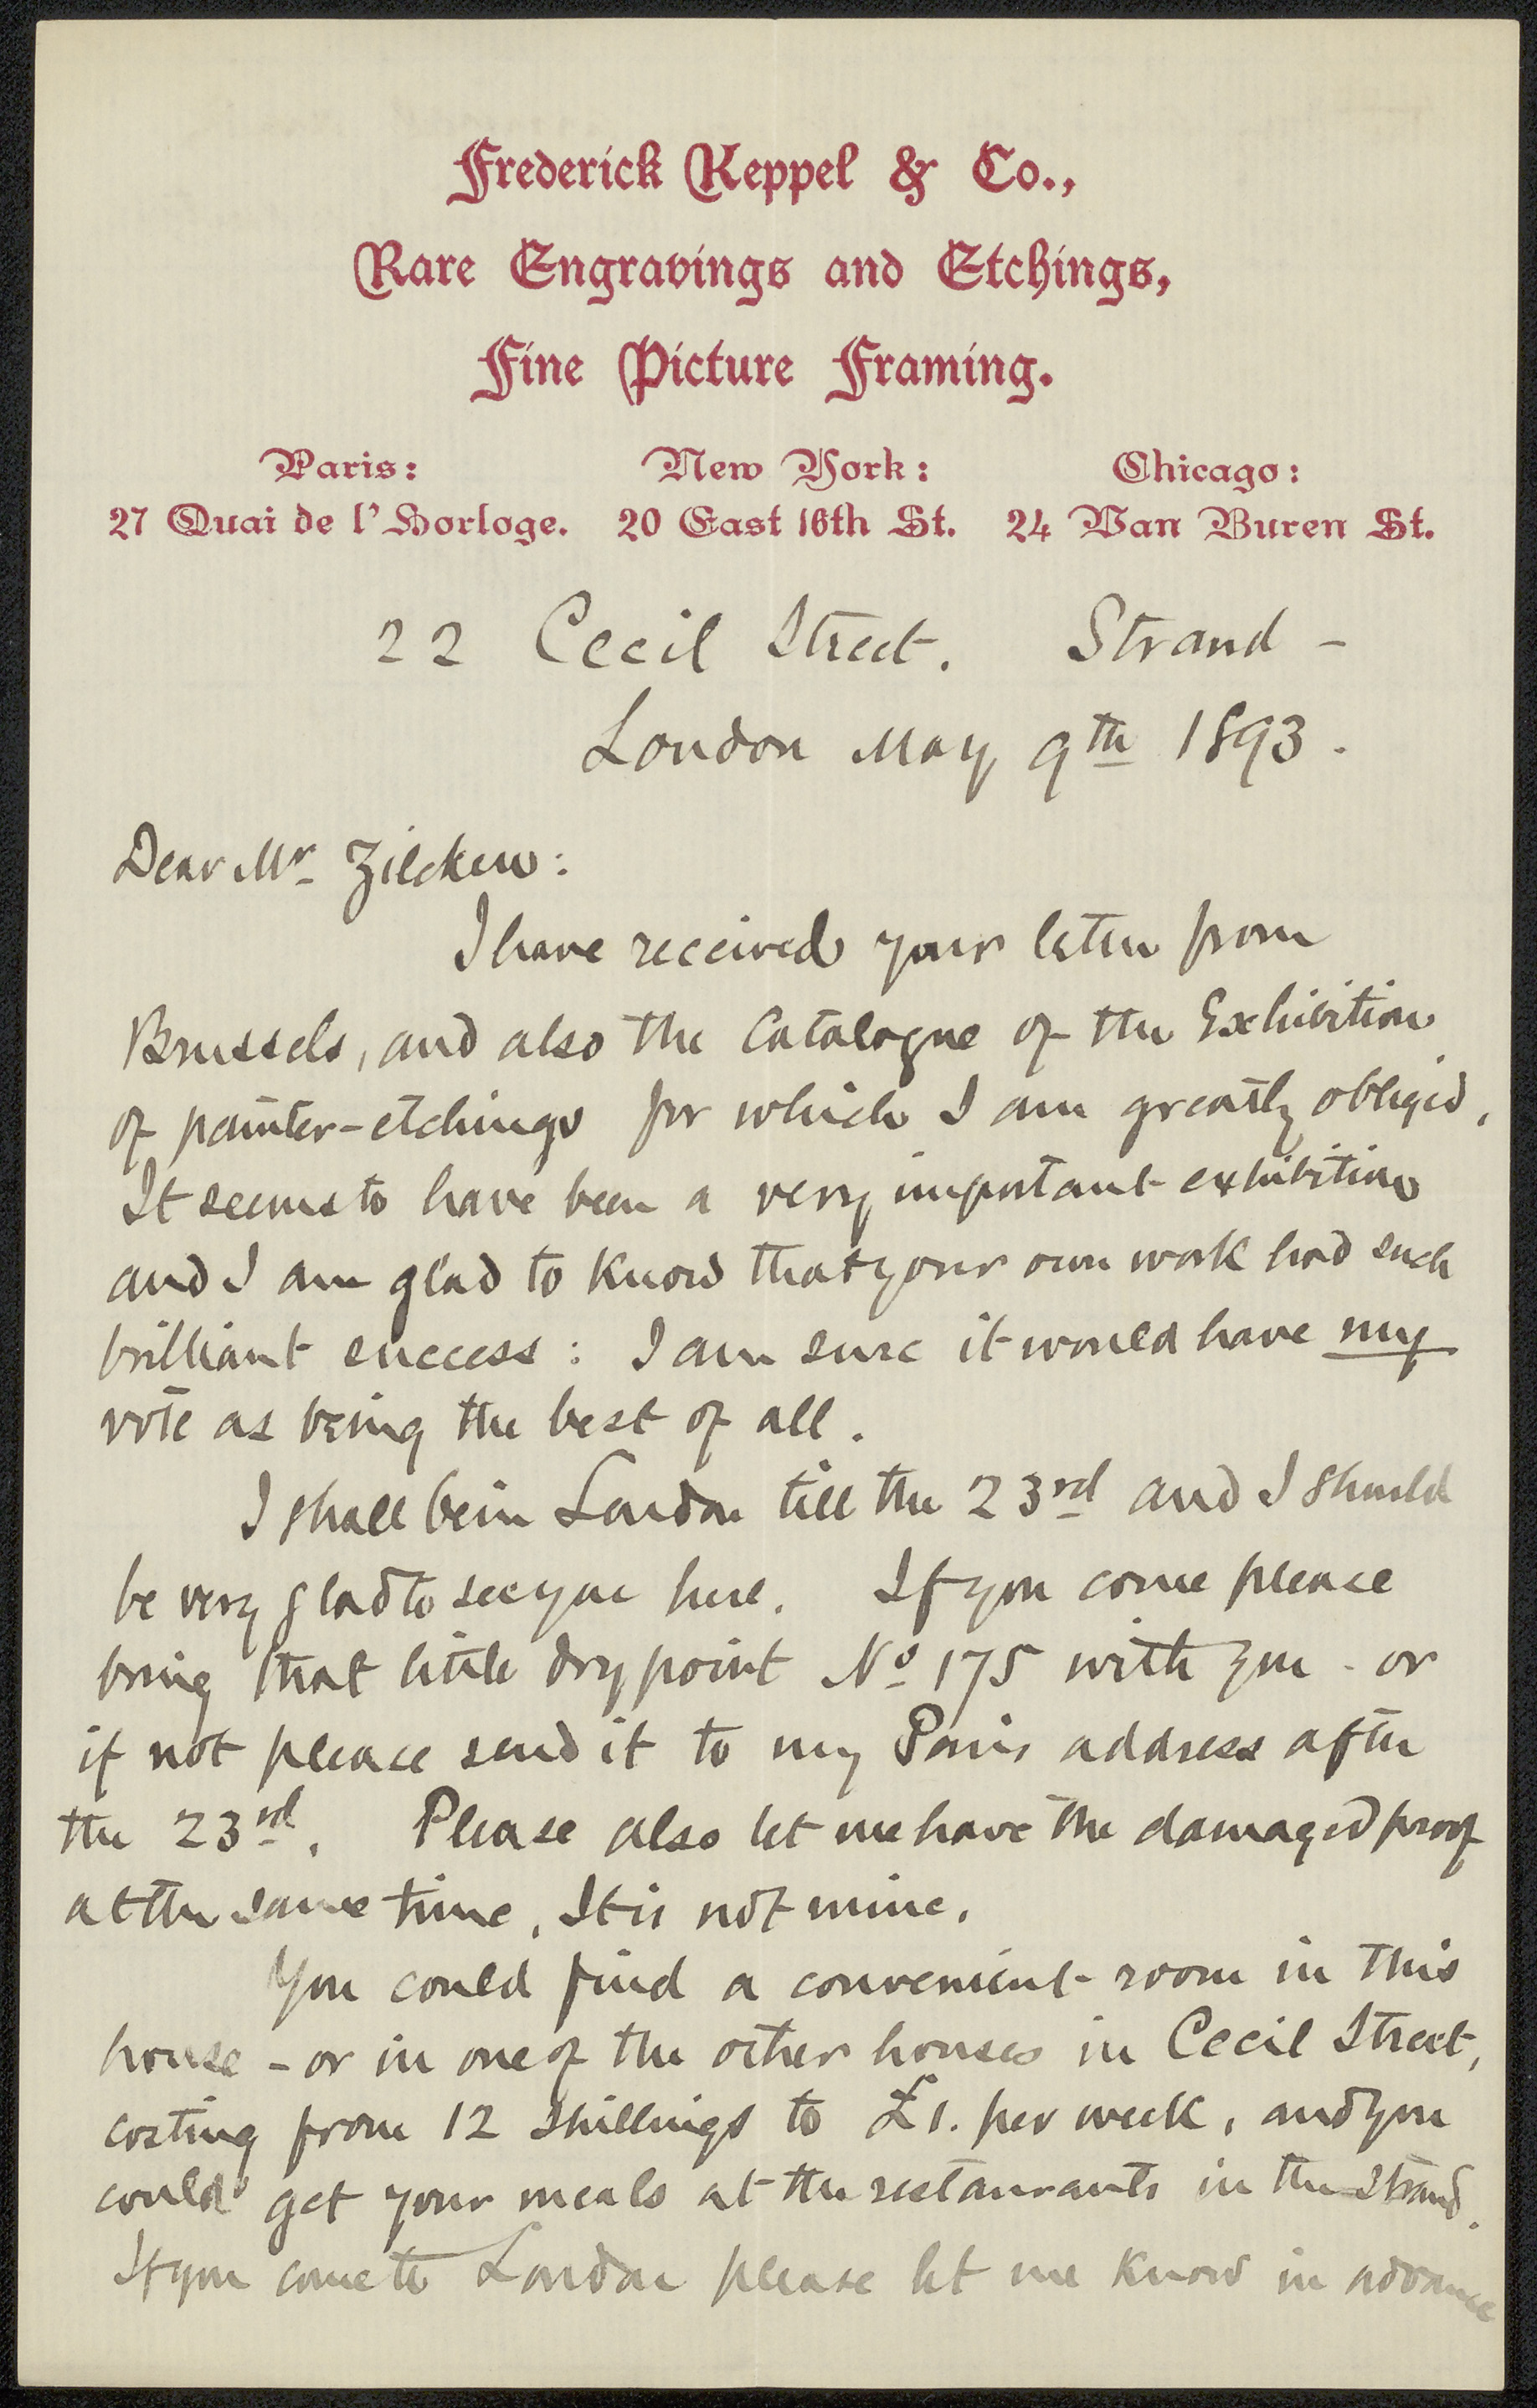 Frederick Keppel & Co.,
Rare Engravings and Etchings,
Fine Picture Framing.
Paris: New York: Chicago:
27 Quai de l'Horloge. 20 East 16th St. 24 Van Buren St.
22 Cecil Street. Strand -
London May 9th 1893.
Dear Mr Zilcken:
I have received your letter from
Brussels, and also the Catalogue of the Exhibition
of painter-etchings for which I am greatly obliged.
It seems to have been a very important exhibition
and I am glad to know that your own work had such
brilliant success: I am sure it would have my
vote as being the best of all.
I shall be in London till the 23rd and I should
be very glad to see you here. If you come please
bring that little dry point No 175 with you - or
if not please send it to my Paris address after
the 23rd. Please also let me have the damaged proof
at the same time, It is not mine.
You could find a convenient room in this
house - or in one of the other houses in Cecil Street,
costing from 12 shillings to £1. per week, and you
could get your meals at the restaurants in the Strand.
If you come to London please let me know in advance